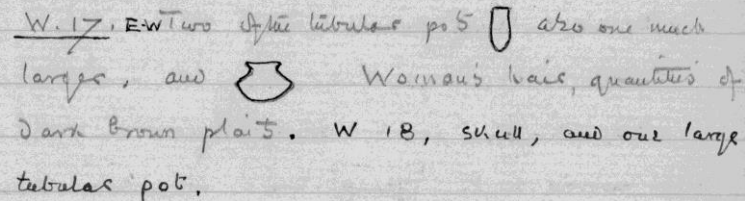 W. 17. E-W Two of the tubular pots also one much
larger, and Woman's hair, quantities of
dark brown plaits. W 18, skull, and one large
tubular pot.